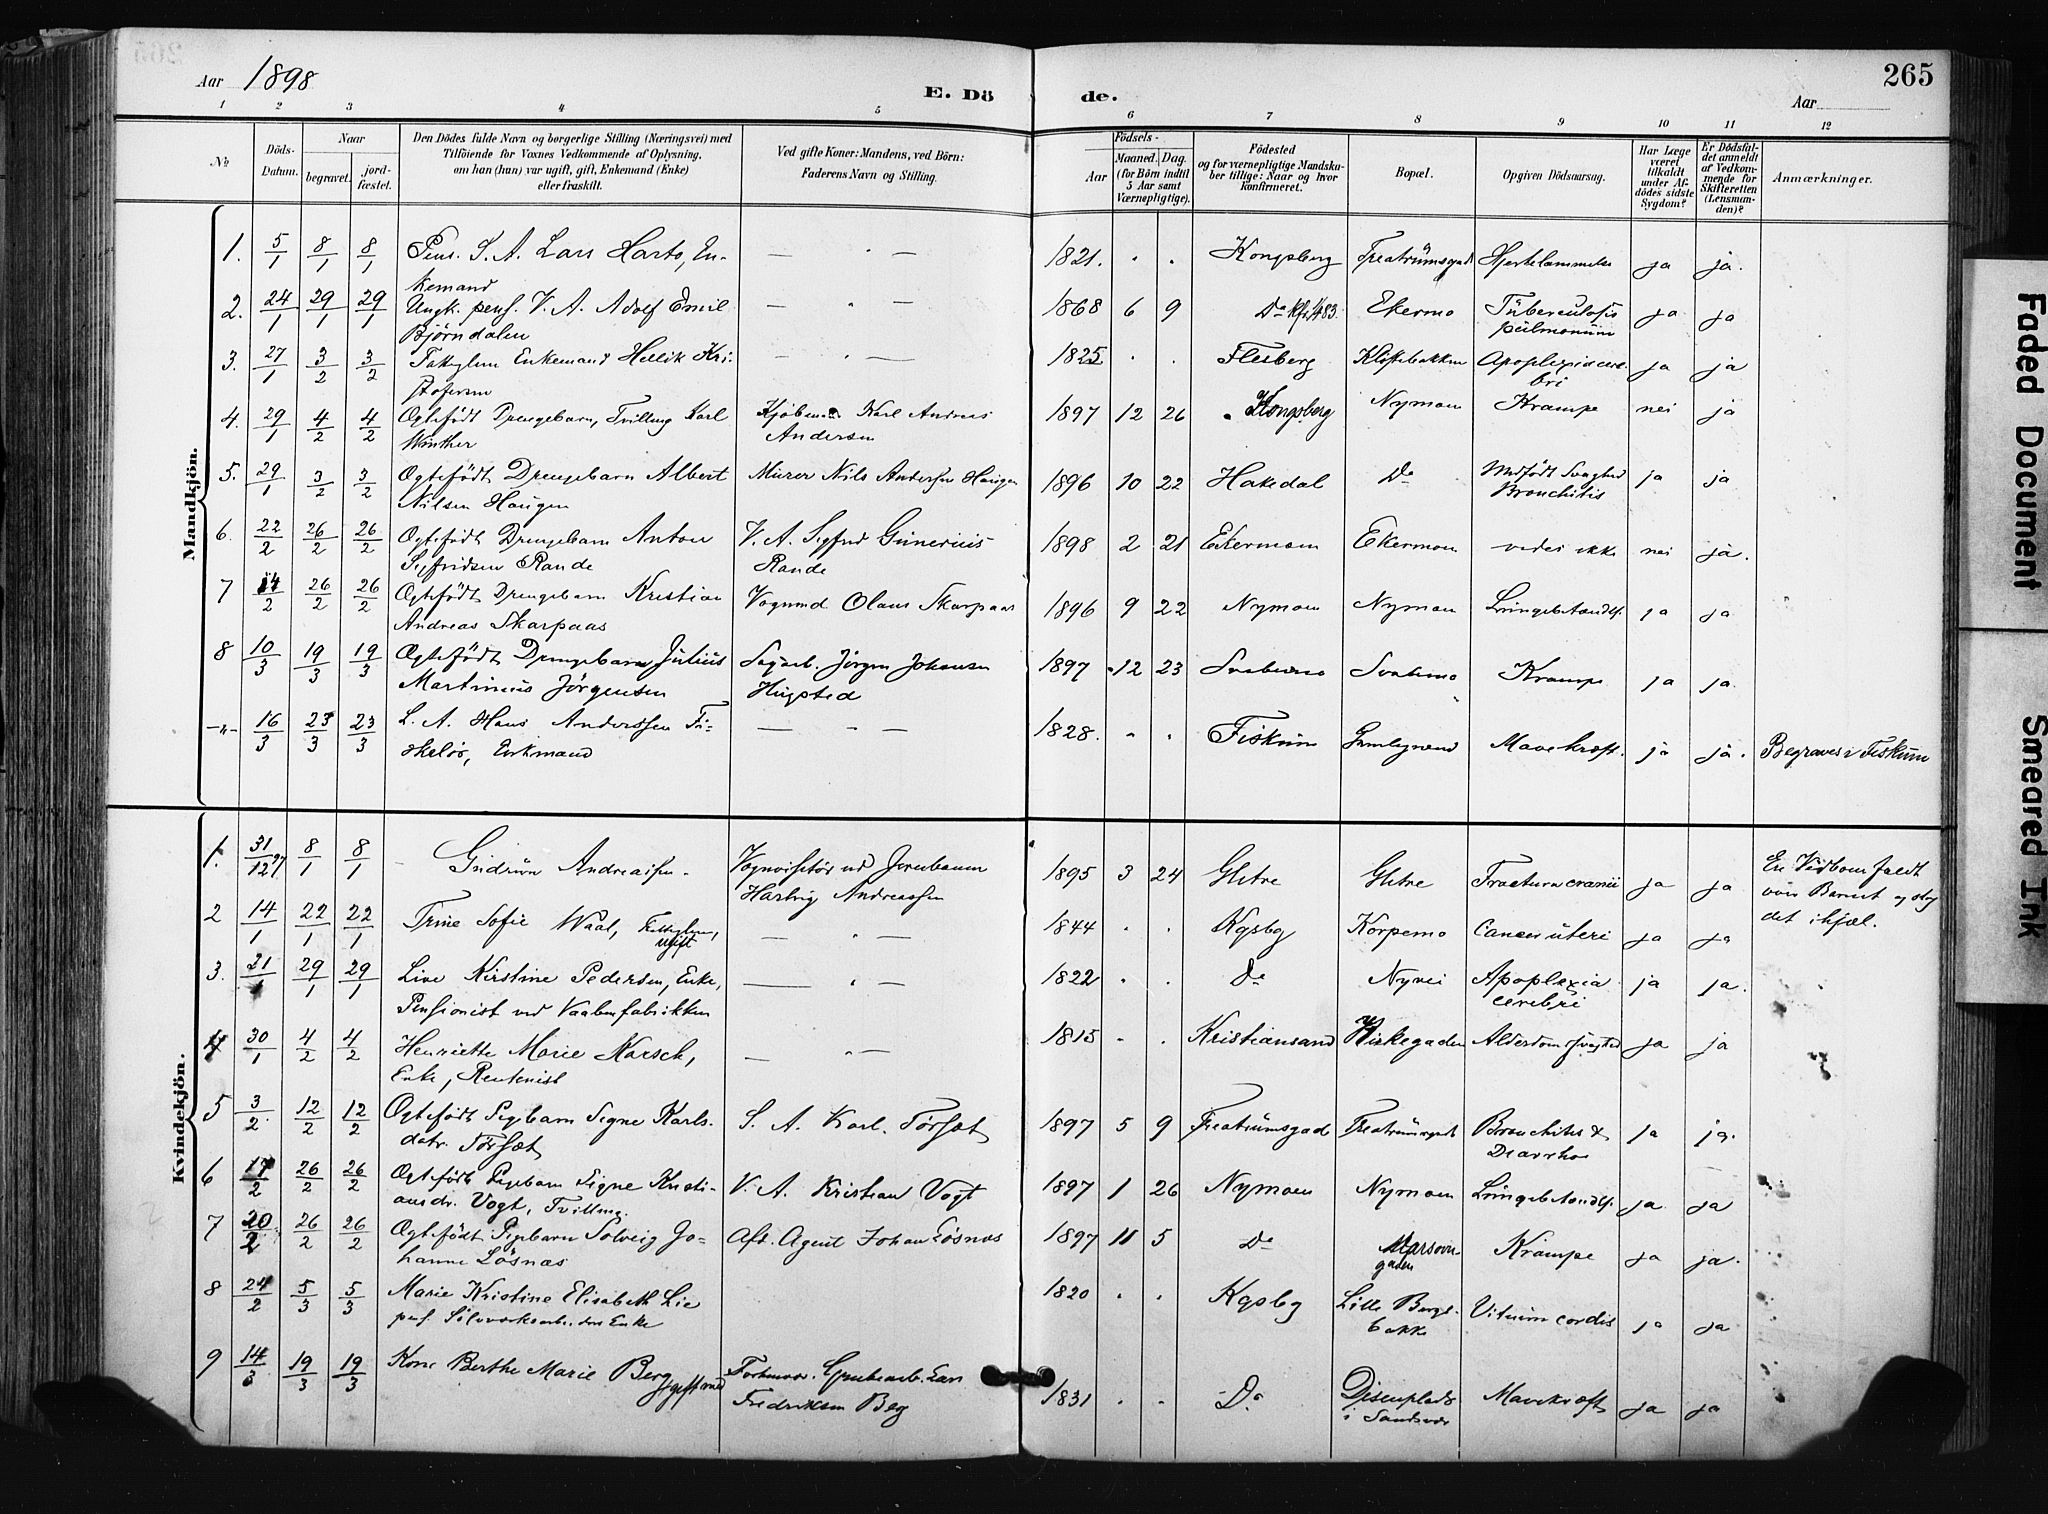 265
Aar 1898
E. Dö de.
Aar
1 2 3 4 5 6 7 8 9 10 11 12
No.
Döds-Datum.
Naar
begravet.
jord-fæstet.
Den Dödes fulde Navn og borgerlige Stilling (Næringsvei) med
Tilföiende for Voxnes Vedkommende af Oplysning,
om han (hun) var ugift, gift, Enkemand (Enke)
eller fraskilt.
Ved gifte Koner: Mandens, ved Börn:
Faderens Navn og Stilling.
Födsels-
Aar
Maaned. Dag.
(for Börn indtil
5 Aar samt
Værnepligtige).
Födested
og for værnepligtige Mandska-
ber tillige: Naar og hvor
konfirmeret.
Bopæl.
Opgiven Dödsaarsag.
Har Læge
været
tilkaldt
under Af-
dödes sidste
Sygdom?
Er Dödsfal-
det anmeldt
af Vedkom-
mende for
Skifteretten
(Lensman-
den)?
Anmærkninger.
Mandkjön.
1. 5/1 8/1 8/1 Pens. S. A. Lars Harto, En-
kemand
— " — 1821. " " Kongsberg Hjertelammelse ja ja.
2. 24/1 29/1 29/1 Ungk. pens. V. A. Adolf Emil
Björndalen
— " — 1868 6 9 Do Ekermo Tüberculosis
pülmonum ja ja
3. 27/1 3/2 3/2 Enkemand Hellik Kri-
stofersen
— " — 1825 " " Flesberg Kløftebakken Apoplexia cere-
bri ja ja
4. 29/1 4/2 4/2 Ogtefödt Drengebarn, Tvilling Karl
Winther
Kjøbm. Karl Andreas
Andersen
1897 12 26 Kongsberg Nymoen Krampe nei ja
5. 29/1 3/2 3/2 Ogtefödt Drengebarn Albert
Nilsen Haugen
Mürer Nils Andersen Haugen
1896 10 22 Hakedal Do Medfödt Svaghed
Bronchitis ja ja
6. 22/2 26/2 26/2 Ogtefödt Drengebarn Anton
Sigfridsen Rande
V. A. Sigfrid Günerius
Rande
1898 2 21 Ekermoen Ekermoen vides ikke nei ja.
7 14/2 26/2 26/2 Ogtefödt Drengebarn Kristian
Andreas Skarpaas
Vognmd Olaus Skarpaas
1896 9 22 Nymoen Nymoen Lüngebetændls. ja ja
8 10/3 19/3 19/3 Ogtefödt Drengebarn Jülius
Martinius Jörgensen
Sagarb. Jörgen Johansen
Hügsted
1897 12 23 Krampe ja ja.
—"— 16/3 23/3 23/3 L. A. Hans Anderssen Fi-
skelös, Enkmand
— " — 1828. " " Fiskum Gamlegrænd Mavekræft. ja ja. Begraves i Fiskum
Kvindekjön.
1. 31/12 97 8/1 8/1 Gudrün Andreassen.
Vognvisitør ved Jernbanen
Hartvig Andreassen
1895 3 24 Glitre Glitre Fractura cranii ja ja En Vedbom faldt
over Barnet og slog
det ihjæl.
2 14/1 22/1 22/1 Trine Sofie Waal, Fattiglem,
ugift
— " — 1844 " " Kgsbg Korpemo Cancer uteri ja ja
3. 21/1 29/1 29/1 Live Kirstine Pedersen, Enke,
Pensionist ved Vaabenfabrikken
— " — 1822 " " Do Nyvei Apoplexia
cerebri ja ja.
4 30/1 4/2 4/2 Henriette Marie Karsch,
Enke, Rentenist
— " — 1815 " " Kristiansand Kirkegaden Alderdomssvaghed ja ja
5 3/2 12/2 12/2 Ogtefödt Pigebarn Signe Karls-
datr. Törsæt
S. A. Karl. Törsæt
1897 5 9 Bronchitis &
Diarrhoe ja ja.
6 17/2 26/2 26/2 Ogtefödt Pigebarn Signe Kristi-
ansdr. Vogt, Tvilling.
V. A. Kristian Vogt
1897 1 26 Nymoen Nymoen Lüngebetændls. ja ja
7 20/2 26/2 26/2 Ogtefödt Pigebarn Solveig Jo-
hanne Løsnæs
Afd. Agent Johan Løsnæs
1897 11 5 Do
gaden Krampe ja ja.
8 24/2 5/3 5/3 Marie Kristine Elisabeth Lie
pens. Sölvverksarb.ders Enke
1820 " " Kgsbg Lille Bergs-
bakke Vitium cordis ja ja
9 14/3 19/3 19/3 Kone Berthe Marie Berg
gift med
Forhenvær. Grubearb. Lars
Fredriksen Berg
1831 " " Do Disenplads
i Sandsvær Mavekræft ja ja
Faded Document
Smeared Ink